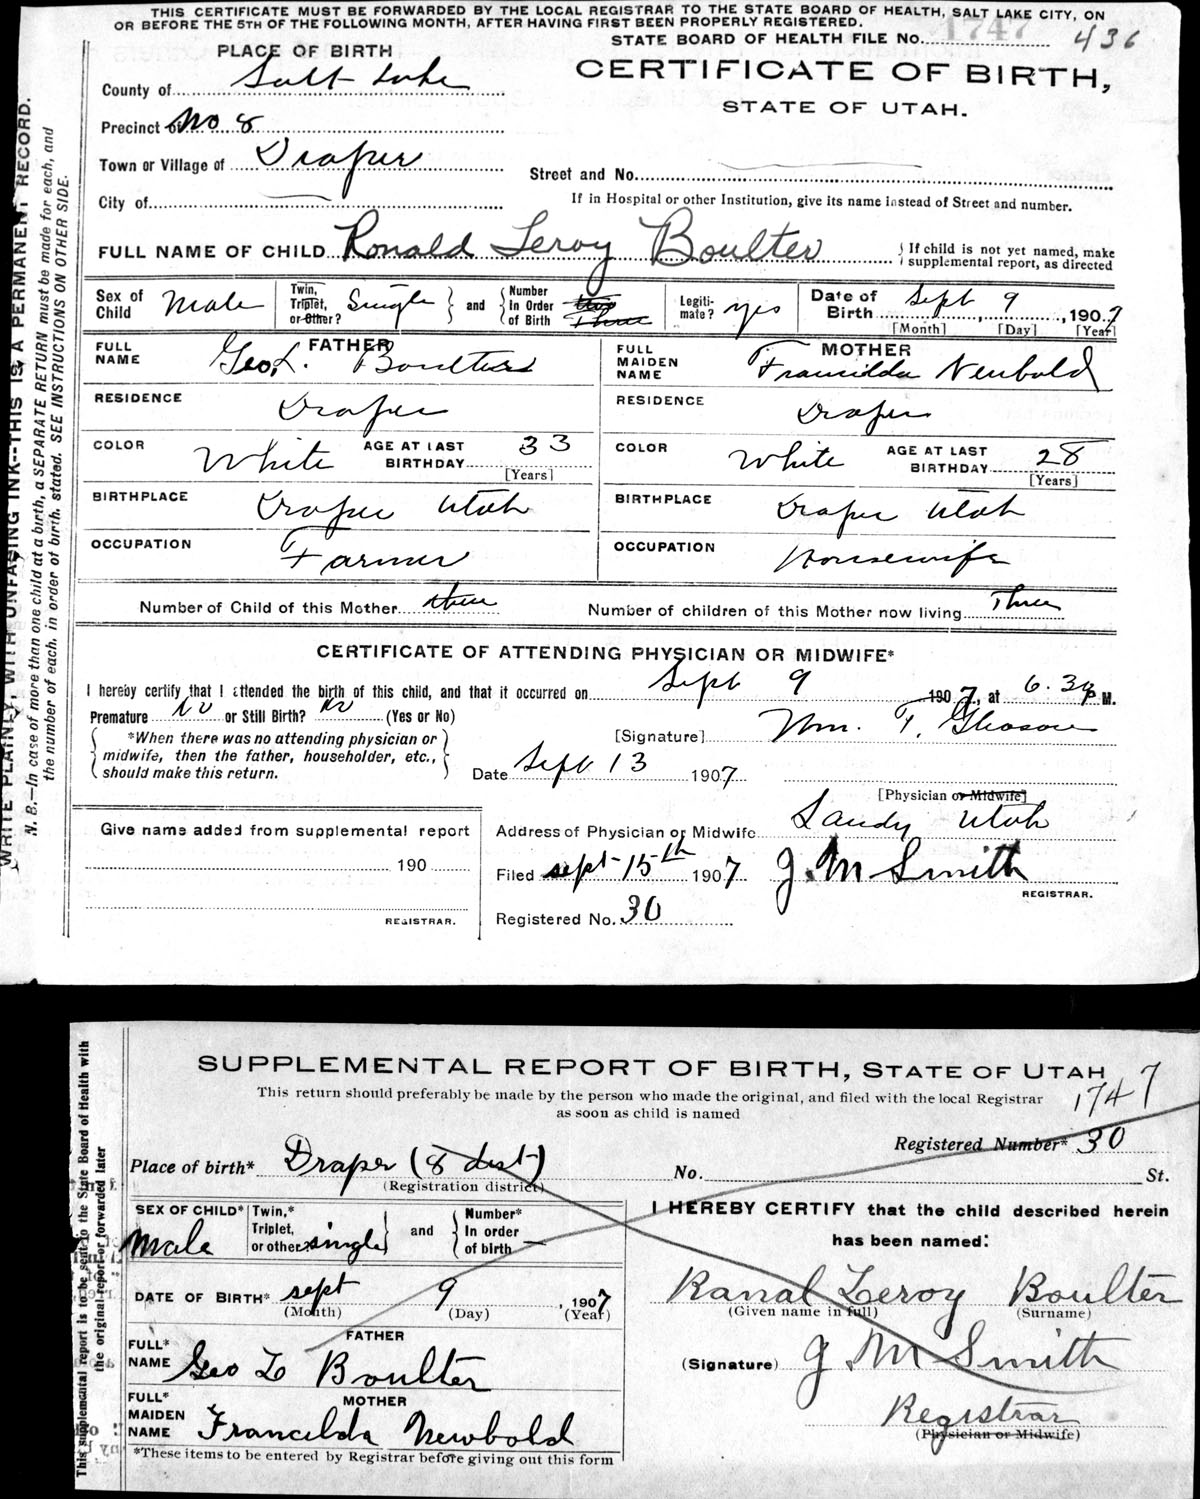 THIS CERTIFICATE MUST BE FORWARDED BY THE LOCAL REGISTRAR TO THE STATE BOARD OF HEALTH, SALT LAKE CITY, ON
OR BEFORE THE 5TH OF THE FOLLOWING MONTH, AFTER HAVING FIRST BEEN PROPERLY REGISTERED.
STATE BOARD OF HEALTH FILE NO. 1747 436
PLACE OF BIRTH
CERTIFICATE OF BIRTH,
STATE OF UTAH.
County of Salt Lake
Precinct of No 8
Town or Village of Draper
Street and No.
City of
If in Hospital or other Institution, give its name instead of Street and number.
FULL NAME OF CHILD Ronald Leroy Boulter
If child is not yet named, make
supplemental report, as directed
Sex of Child Male
Twin, Triplet, or Other? Single
and
Number In Order of Birth two Three
Legitimate? yes
Date of Birth Sept 9, 1907
[Month] [Day] [Year]
FATHER
FULL NAME Geo L. Boulter
MOTHER
FULL MAIDEN NAME Francilda Newbold
RESIDENCE Draper
RESIDENCE Draper
COLOR White AGE AT LAST BIRTHDAY 33 [Years]
COLOR White AGE AT LAST BIRTHDAY 28 [Years]
BIRTHPLACE Draper Utah
BIRTHPLACE Draper Utah
OCCUPATION Farmer
OCCUPATION Housewife
Number of Child of this Mother three
Number of children of this Mother now living Three
CERTIFICATE OF ATTENDING PHYSICIAN OR MIDWIFE*
I hereby certify that I attended the birth of this child, and that it occurred on Sept 9 1907, at 6.30 P M.
Premature No or Still Birth? No (Yes or No)
*When there was no attending physician or
midwife, then the father, householder, etc.,
should make this return.
[Signature] Wm. T. Gleason
Date Sept 13 1907
[Physician or Midwife]
Give name added from supplemental report
190
REGISTRAR.
Address of Physician or Midwife Sandy Utah
Filed sept 15th 1907 J. M Smith
REGISTRAR.
Registered No. 30
WRITE PLAINLY, WITH UNFASING INK--THIS IS A PERMANENT RECORD.
N. B.—In case of more than one child at a birth, a SEPARATE RETURN must be made for each, and
the number of each, in order of birth, stated. SEE INSTRUCTIONS ON OTHER SIDE.
SUPPLEMENTAL REPORT OF BIRTH, STATE OF UTAH
This return should preferably be made by the person who made the original, and filed with the local Registrar
as soon as child is named
1747
Registered Number* 30
Place of birth* Draper (8 dist)
(Registration district)
No. St.
SEX OF CHILD* Male
Twin,* Triplet, or other single
and
Number* In order of birth —
I HEREBY CERTIFY that the child described herein
has been named:
DATE OF BIRTH* sept 9, 1907
(Month) (Day) (Year)
Ranal Leroy Boulter
(Given name in full) (Surname)
FATHER
FULL* NAME Geo L Boulter
(Signature) J M Smith
MOTHER
FULL* MAIDEN NAME Francilda Newbold
Registrar
(Physician or Midwife)
*These items to be entered by Registrar before giving out this form
This supplemental report is to be sent to the State Board of Health with
the original report or forwarded later